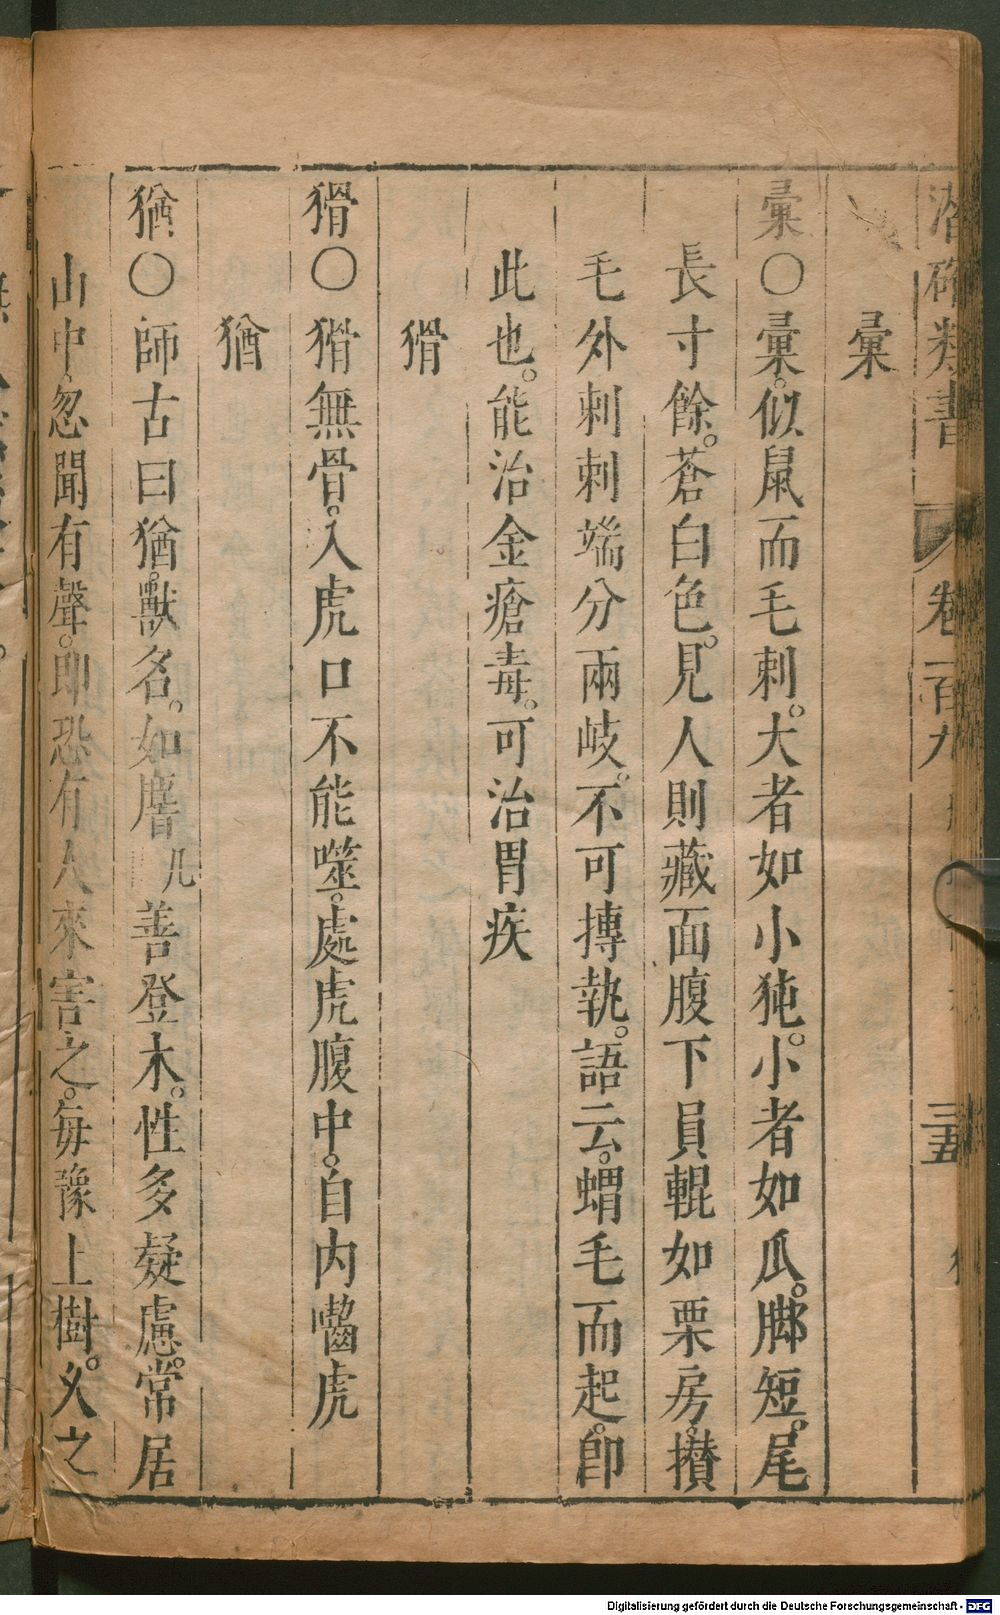 潛確類書 卷一百九 三五
彙
彙○彙似鼠而毛刺。大者如小㹠。小者如瓜。腳短。尾
長寸餘。蒼白色。見人則藏面腹下員輥如栗房。攅
毛外刺刺端分兩岐。不可摶執。語云。蝟毛而起。即
此也。能治金瘡毒。可治胃疾
猾
猾○猾無骨。入虎口不能噬。處虎腹中。自內嚙虎
猶
猶○師古曰猶。獸名。如麏 几 善登木。性多疑慮。常居
山中忽聞有聲。即恐有人來害之。每豫上樹。久之
Digitalisierung gefördert durch die Deutsche Forschungsgemeinschaft - DFG